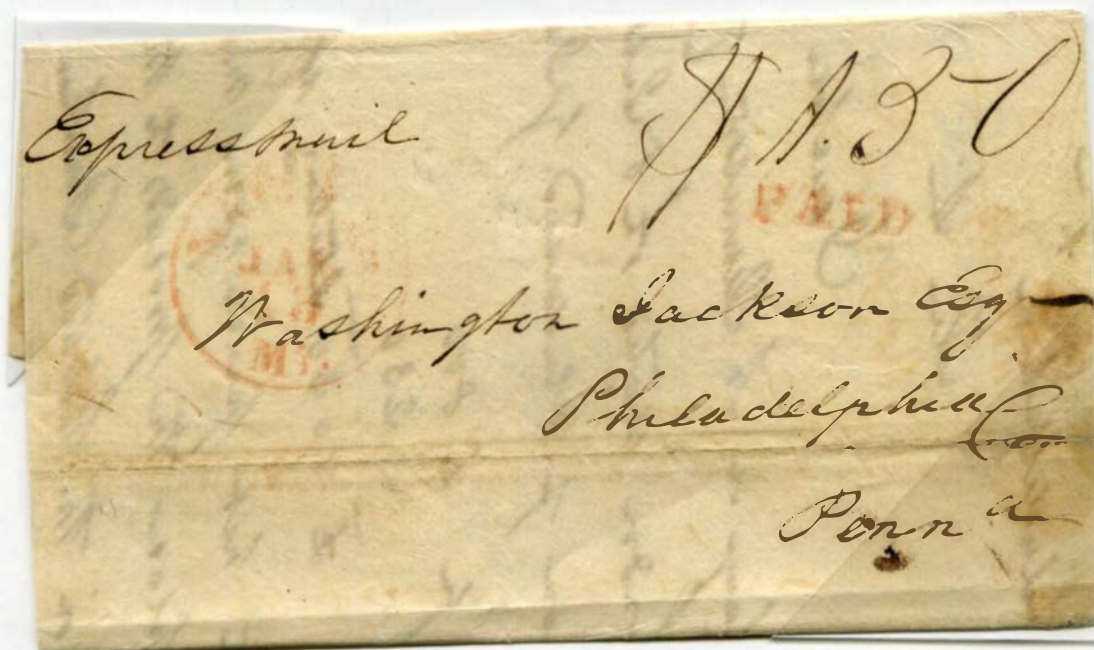 Express Mail
$ 1.50
PAID
JAN
19
MI.
Washington Jackson Esq
Philadelphia
Penn a